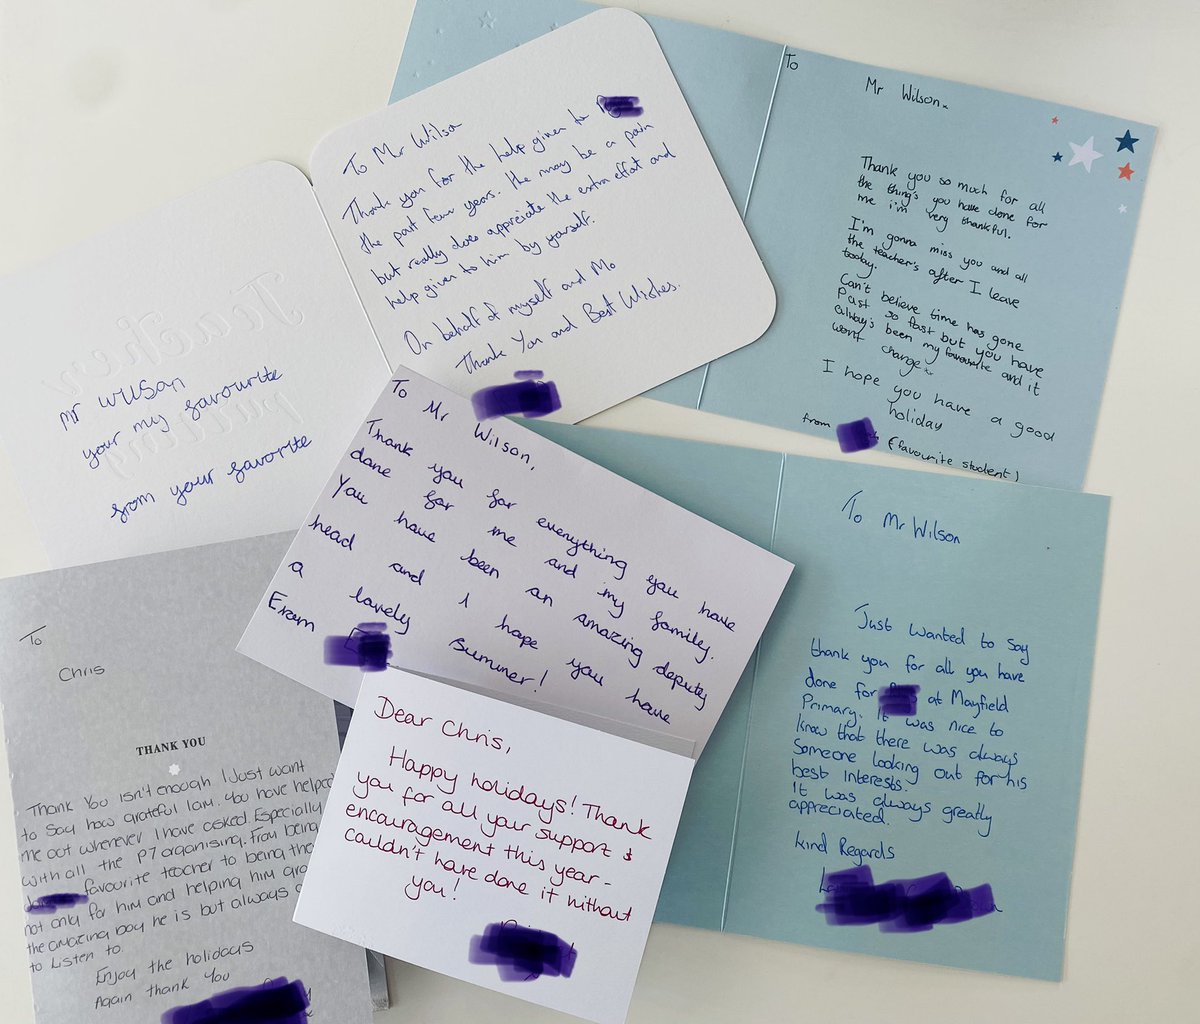 To Mr Wilson
Thank you for the help given to
the past few years. He may be a pain
but really does appreciate the extra effort and
help given to him by yourself.
On behalf of myself and Mo
Thank You and Best Wishes.
To
Mr Wilson.
Thank you so much for all
the thing's you have done for
me i'm very thankful.
I'm gonna miss you and all
the teacher's after I leave
today.
Can't believe time has gone
Past so fast but you have
always been my favourite and it
wont change
I hope you have a good
holiday
from
(favourite student)
Teacher
mr wilson
your my favourite
from your favorite
To Mr Wilson,
Thank you for everything you have
done for me and my family.
You have been an amazing deputy
head and I hope you have
a lovely summer!
From
To Mr Wilson
Just wanted to say
thank you for all you have
done for at Mayfield
Primary. It was nice to
know that there was always
someone looking out for his
best interests.
It was always greatly
appreciated.
kind Regards
To
Chris
THANK YOU
Thank You isn't enough I Just want
to say how grateful I am. You have helped
me out whenever I have asked. Especially
with all the P7 organising. From being
favourite teacher to being the
not only for him and helping him
the amazing boy he is but always
to Listen to.
Enjoy the holidays
Again thank You
Dear Chris,
Happy holidays! Thank
you for all your support &
encouragement this year -
couldn't have done it without
you!